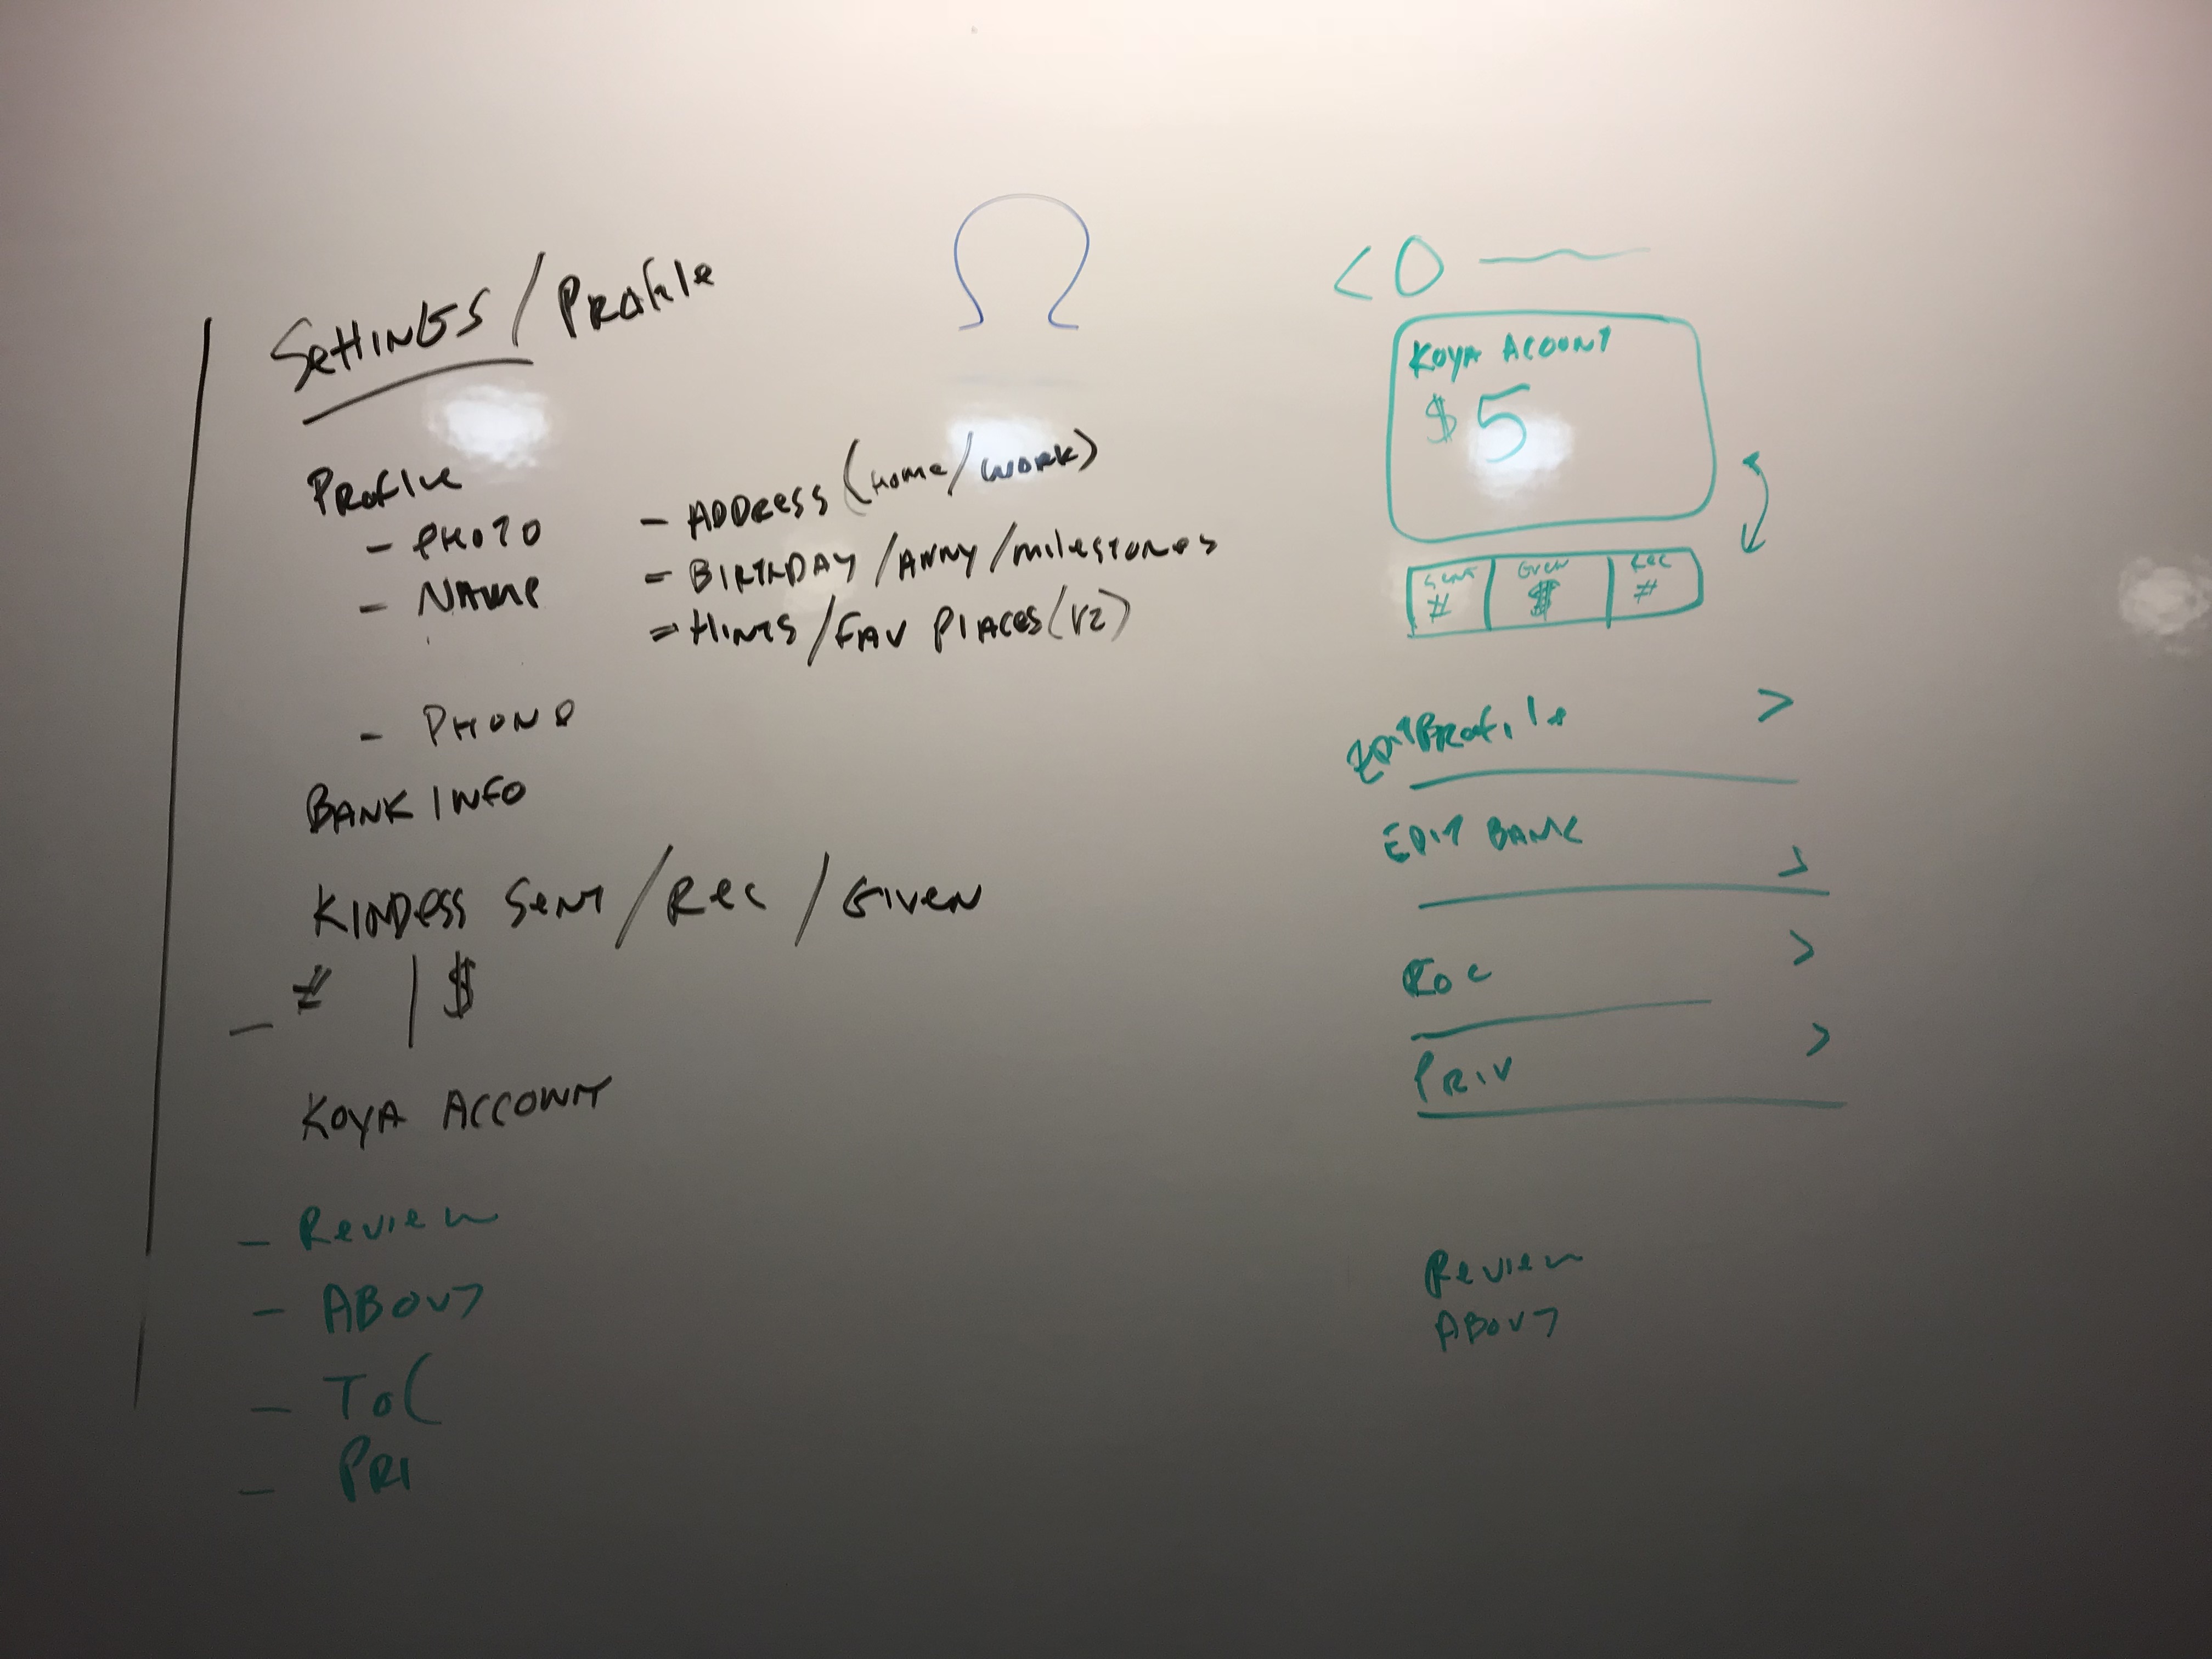 SettINGS / PROFile
PROFIle
- PHOTO
- NAMe
- PHONe
- ADDRess (Home/WORK)
- BIRTHDAY / ANNY / milestones
- HINTS / FAV PlAces (V2)
BANK INFO
KINDess SeNT / Rec / GIVeN
- # | $
KOYA ACCOUNT
- Review
- ABOUT
- ToC
- PRI
<
KOYA ACOUNT
$ 5
SeNT
#
GIVeN
$
Rec
#
EDIT PROFile >
EDIT BANK >
ToC >
PRIV >
Review
ABOUT